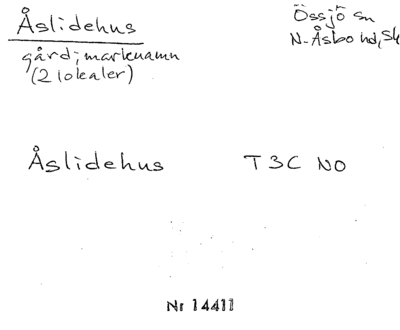 Åslidehus
gård; marknamn
(2 lokaler)
Össjö sn
N. Åsbo hd, Sk
Åslidehus T3C NO
Nr 14411